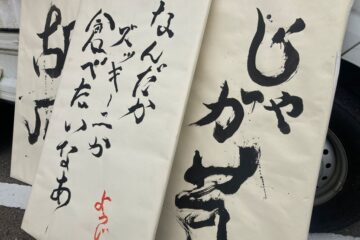 じゃが芋
なんだか
ズッキーニが
食べたいなあ